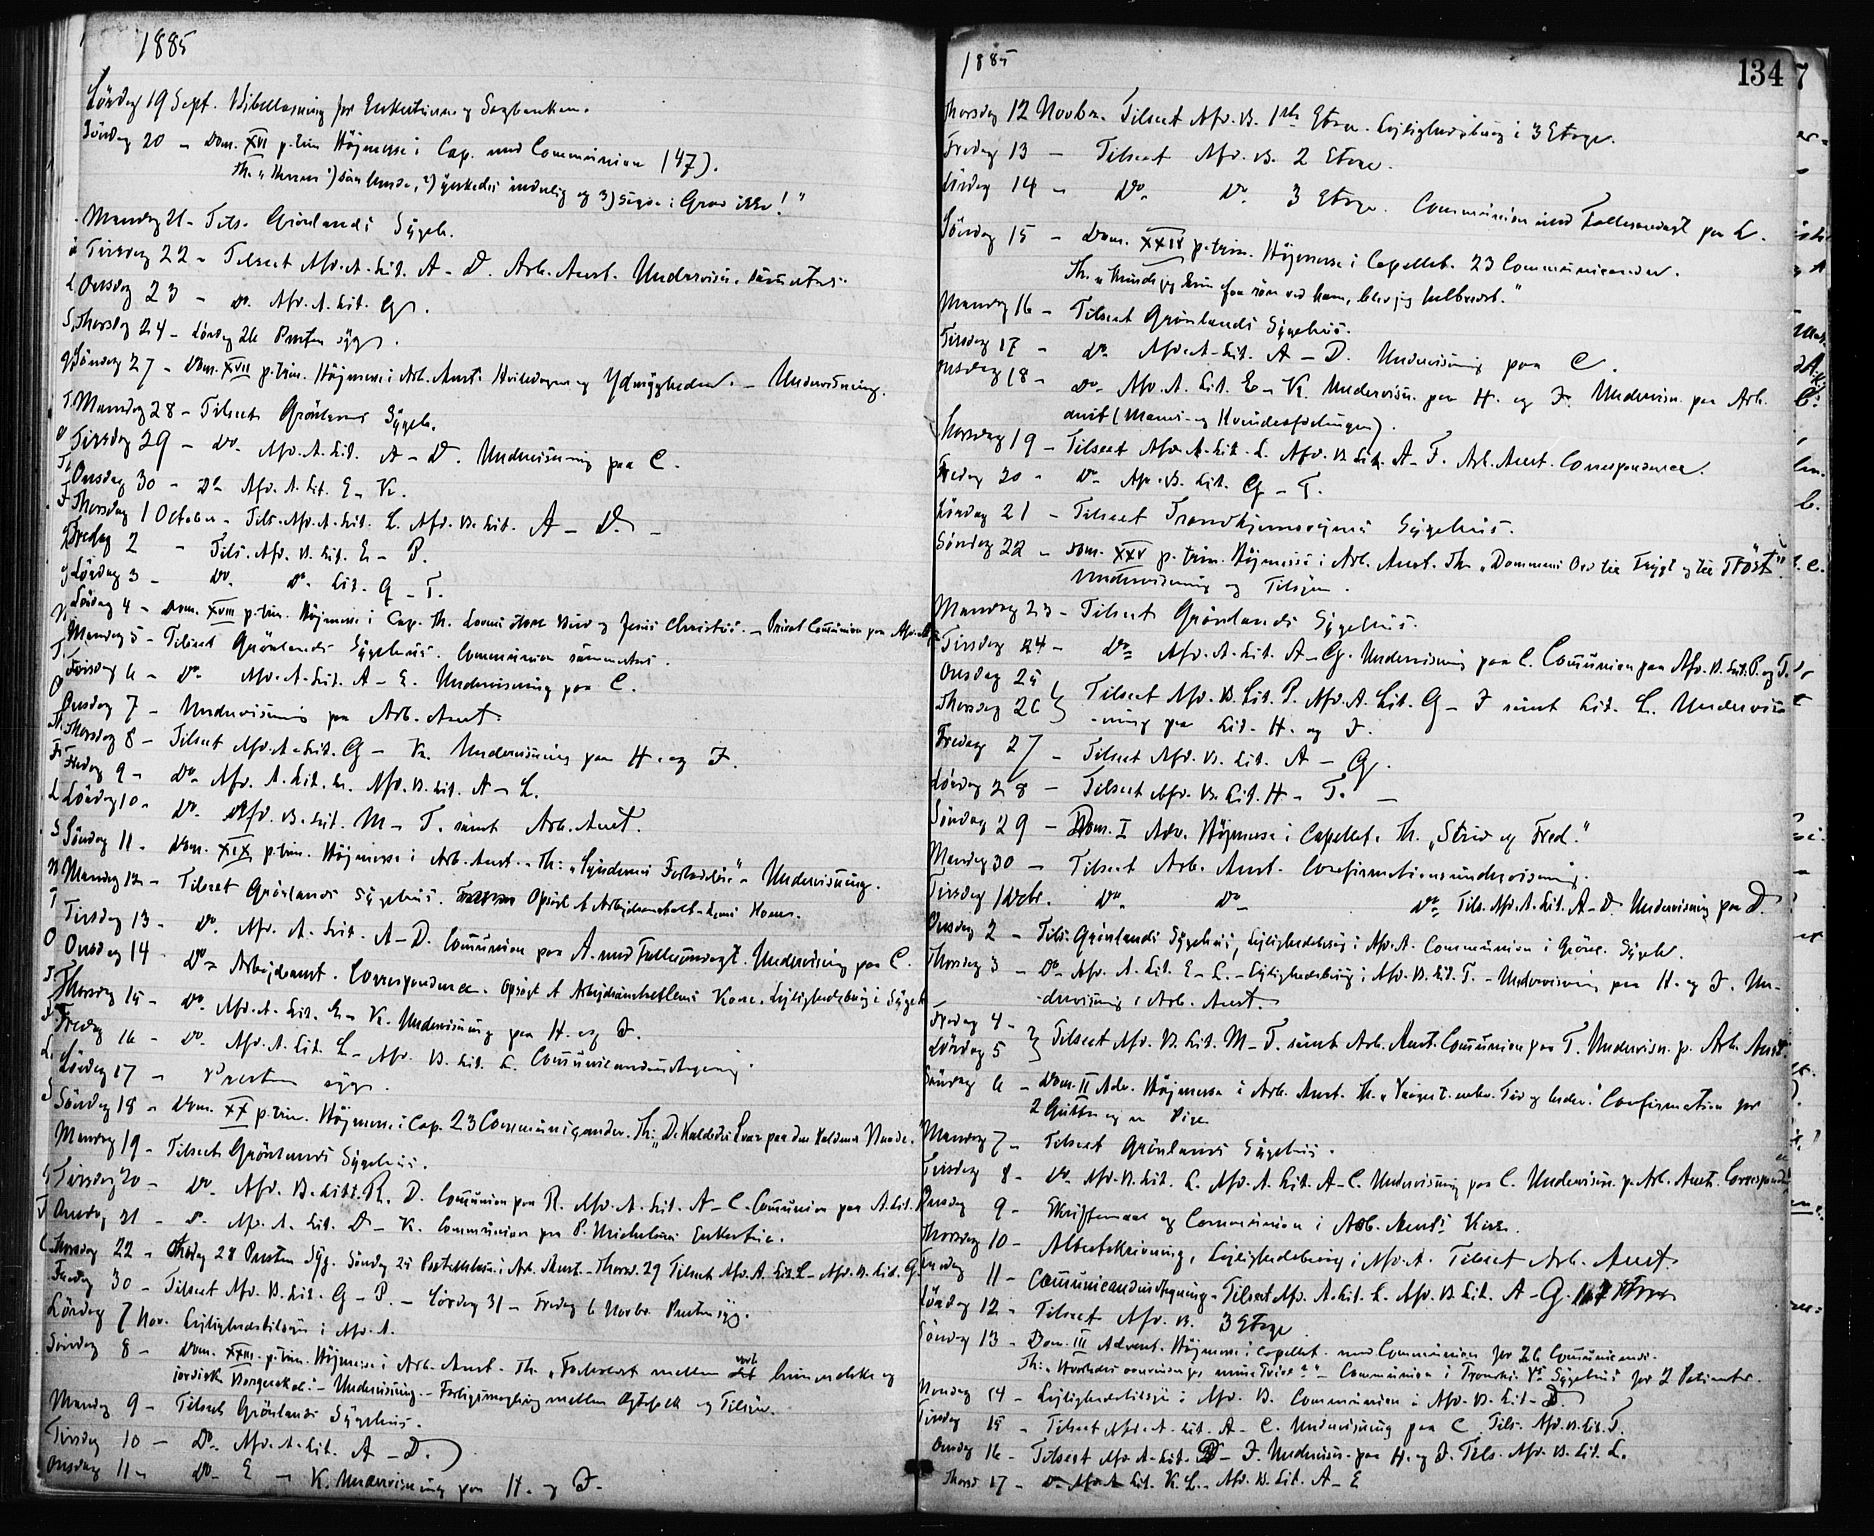 1885
Lördag 19 Sept. Bibellæsning for Enkerterne og
Söndag 20 - Dom. XVI p. trin. Höjmesse i Cap. med Communion (47).
Mandag 21 - Tils. Grönlands Sygeh.
Tirsdag 22 - Tilseet Afd. A. Lit. A - D. Arb. Anst. Undervisn. sammetst.
Onsdag 23 - Do. Afd. A. Lit. G.
Thorsdag 24 - Lördag 26 Presten syg.
Söndag 27 - Dom. XVII p. trin. Höjmesse i Arb. Anst. Hviledagen og Ydmygheden. - Undervisning.
Mandag 28 - Tilseet Grönlands Sygeh.
Tirsdag 29 - Do. Afd. A. Lit. A - D. Undervisning paa C.
Onsdag 30 - Do. Afd. A. Lit. E - K.
Thorsdag 1 October - Tils. Afd. A. Lit. L. Afd. B. Lit. A - D. -
Fredag 2 - Tils. Afd. B. Lit. E - P.
Lördag 3 - Do. Do. Lit. Q - T.
Söndag 4 - Dom. XVIII p. trin. Höjmesse i Cap. Th. Lovens store Bud og Jesus Christus. - Privat Communion paa Afd.
Mandag 5 - Tilseet Grönlands Sygehus. Communion sammetst.
Tirsdag 6 - Do. Afd. A. Lit. A - E. Undervisning paa C.
Onsdag 7 - Undervisning paa Arb. Anst.
Thorsdag 8 - Tilseet Afd. A. Lit. G - K. Undervisning paa H. og J.
Fredag 9 - Do. Afd. A. Lit. L. Afd. B. Lit. A - L.
Lördag 10 - Do. Afd. B. Lit. M - T. samt Arb. Anst.
Söndag 11 - Dom. XIX p. trin. Höjmesse i Arb. Anst. - Th: "Syndernes Forladelse" - Undervisning.
Mandag 12 - Tilseet Grönlands Sygehus. Opsögt A Arbejdsanstalt-Lems Kone.
Tirsdag 13 - Do. Afd. A. Lit. A - D. Communion paa A. med Fællesandagt. Undervisning paa C.
Onsdag 14 - Do. Arbejdsanst. Correspondence. Opsögt A Arbejdsanstaltlems Kone. Lejlighedsbesög i Sygeh
Thorsdag 15 - Do. Afd. A. Lit. E - K. Undervisning paa H. og J.
Fredag 16 - Do. Afd. A. Lit. L - Afd. B. Lit. L. Communicantindtegning.
Lördag 17 - Presten syg.
Söndag 18 - Dom. XX p. trin. Höjmesse i Cap. 23 Communicanter. Th: "De Kaldedes Svar paa den kaldende Naade."
Mandag 19 - Tilseet Grönlands Sygehus.
Tirsdag 20 - Do. Afd. B. Lit. R. D. Communion paa R. Afd. A. Lit. A - C. Communion paa A. Lit.
Onsdag 21 - Do. Afd. A. Lit. D - K. Communion paa P.
Thorsdag 22 - Lördag 28 Presten Syg. Söndag 25 i Arb. Anst. - Thorsd. 29 Tilseet Afd. A. Lit. L - Afd. B. Lit. G.
Fredag 30 - Tilseet Afd. B. Lit. G - P. - Lördag 31 - Fredag 6 Novbr. Presten syg.
Lördag 7 Nov. Lejlighedstilsyn i Afd. A.
Söndag 8 - Dom. XXIII p. trin. Höjmesse i Arb. Anst. Th. "Forholdet mellem vort himmelske og
jordiske Borgerskab." - Undervisning. - Forligsmægling mellem Ægtefolk og Tilsyn.
Mandag 9 - Tilseet Grönlands Sygehus.
Tirsdag 10 - Do. Afd. A. Lit. A - D.
Onsdag 11 - Do. E - K. Undervisning paa H. og J.
1885
134 7
Thorsdag 12 Novbr. Tilseet Afd. B. 1ste Etage. Lejlighedsbesög i 3 Etage.
Fredag 13 - Tilseet Afd. B. 2 Etage.
Lördag 14 - Do. Do. 3 Etage. Communion med Fællesandagt paa L.
Söndag 15 - Dom. XXIV p. trin. Höjmesse i Capellet. 23 Communicanter.
Th. "Kunde jeg kun faa röre ved ham, blev jeg helbredet."
Mandag 16 - Tilseet Grönlands Sygehus.
Tirsdag 17 - Do. Afd. A. Lit. A - D. Undervisning paa C.
Onsdag 18 - Do. Afd. A. Lit. E - K. Undervisn. paa H. og J. Undervisn. paa Arb.
anst (Mands- og Kvindeafdelingen).
Thorsdag 19 - Tilseet Afd. A. Lit. L. Afd. B. Lit. A - F. Arb. Anst. Correspondence.
Fredag 20 - Do. Afd. B. Lit. G - T.
Lördag 21 - Tilseet Trondhjemsvejens Sygehus.
Söndag 22 - Dom. XXV p. trin. Höjmesse i Arb. Anst. Th. "Dommens Ord til Frygt og til Tröst".
Undervisning og Tilsyn.
Mandag 23 - Tilseet Grönlands Sygehus.
Tirsdag 24 - Do. Afd. A. Lit. A - G. Undervisning paa C. Communion paa Afd. B. Lit. P. og T.
Onsdag 25
Thorsdag 26 } Tilseet Afd. B. Lit. P. Afd. A. Lit. G - J samt Lit. L. Undervis-
-ning paa Lit. H. og J.
Fredag 27 - Tilseet Afd. B. Lit. A - G.
Lördag 28 - Tilseet Afd. B. Lit. H - T. -
Söndag 29 - Dom. I Adv. Höjmesse i Capellet. Th. "Strid og Fred."
Mandag 30 - Tilseet Arb. Anst. Confirmationsundervisning.
Tirsdag 1 Decbr. Do. Do. Do. Tils. Afd. A. Lit. A - D. Undervisning paa D.
Onsdag 2 - Tils. Grönlands Sygehus, Lejlighedsbesög i Afd. A. Communion i Grönl. Sygeh.
Thorsdag 3 - Do. Afd. A. Lit. E - L. - Lejlighedsbesög i Afd. B. Lit. T. - Undervisning paa H. og J. Un-
-dervisning i Arb. Anst.
Fredag 4 -
Lördag 5 } Tilseet Afd. B. Lit. M - T. samt Arb. Anst. Communion paa T. Undervisn. p. Arb. Anst.
Söndag 6 - Dom. II Adv. Höjmesse i Arb. Anst. Th. Confirmation for
2 Gutter og en Pige.
Mandag 7 - Tilseet Grönlands Sygehus.
Tirsdag 8 - Do. Afd. B. Lit. L. Afd. A. Lit. A - C. Undervisning paa C. Undervisn. p. Arb. Anst. Correspondence
Onsdag 9 - Skriftemaal og Communion i Arb. Anst. Kirke.
Thorsdag 10 - Lejlighedsbesög i Afd. A. Tilseet Arb. Anst.
Fredag 11 - Communicantindtegning - Tilseet Afd. A. Lit. L. Afd. B. Lit. A - G.
Lördag 12 - Tilseet Afd. B. 3 Etage
Söndag 13 - Dom. III Advent. Höjmesse i Capellet med Communion for 26 Communicants.
Communion i Sygehus for 2 Patienter.
Mandag 14 - Lejlighedstilsyn i Afd. B. Communion i Afd. B. Lit. D.
Tirsdag 15 - Tilseet Afd. A. Lit. A - C. Undervisning paa C Tils. Afd. B. Lit. T.
Onsdag 16 - Tilseet Afd. A. Lit. D - J. Undervisn. paa H. og J. Tils. Afd. B. Lit. L.
Thorsd. 17 - Do. Afd. A. Lit. K. L. - Afd. B. Lit. A - E